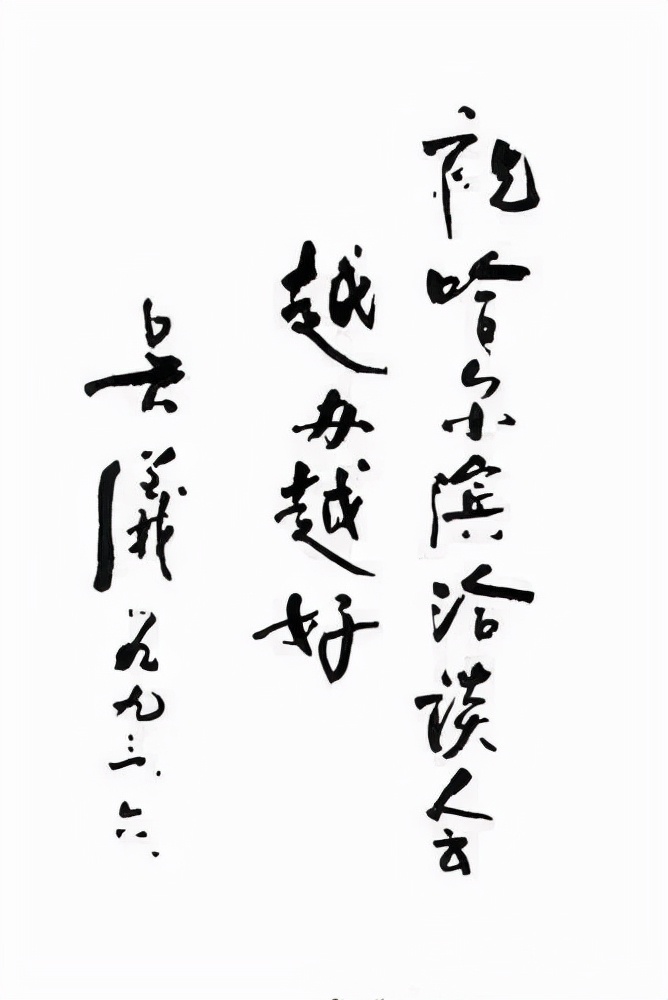 祝哈尔滨洽谈会
越办越好
吴仪
一九九三.六.